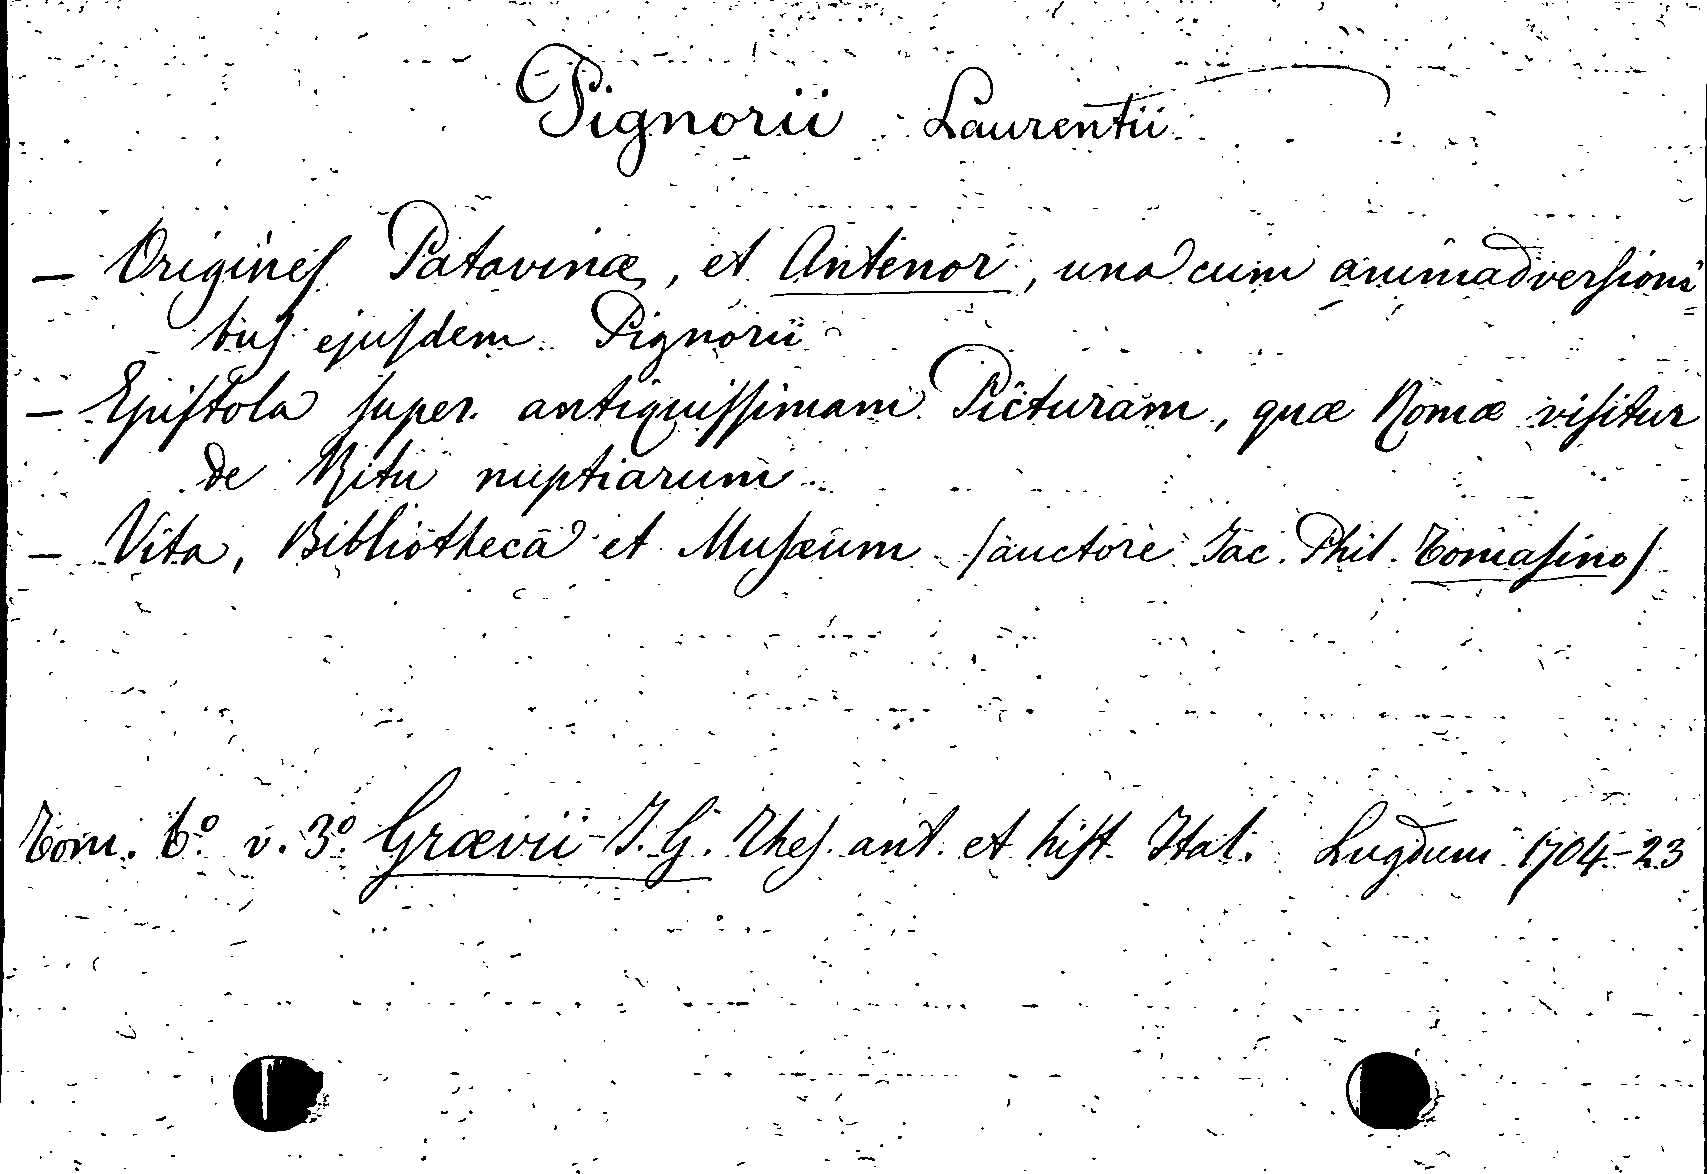 Pignorii Laurentii
— Origineſ Patavinæ, et Antenor, una cum animadverſioni=
buſ ejuſdem Pignorii
— Epiſtola ſuper antiquiſſimam Picturam, quæ Romæ viſitur
de Ritu nuptiarum
— Vita, Bibliotheca et Muſæum /auctore Jac. Phil. Tomaſino/
Tom. 6º v. 3º Grævii J. G. Theſ. ant. et hiſt. Ital. Lugduni 1704-23